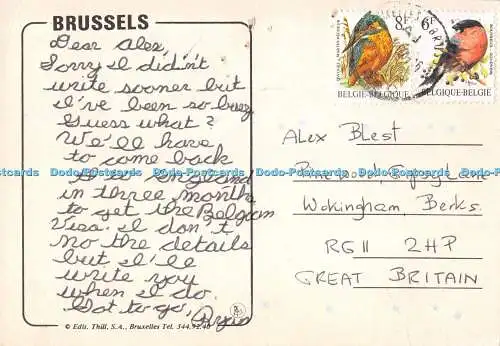 BRUSSELS
Dear Alex,
Sorry I didn't
write sooner but
I've been so busy
Guess what?
We'll have
to come back
England
in three months
to get the Belgian
Visa. I don't
no the details
but I'll
write you
when I do.
Got to go,
Ryan
© Edit. Thill, S.A., Bruxelles Tel. 344.92.40
8F
BELGIE-BELGIQUE
6F
BELGIQUE-BELGIE
ALEX Blest
Pinewood,
Wokingham, Berks.
RG11 2HP
GREAT BRITAIN
Dodo-Postcards Dodo-Postcards Dodo-Postcards Dodo-Postcards Dodo-Postcards